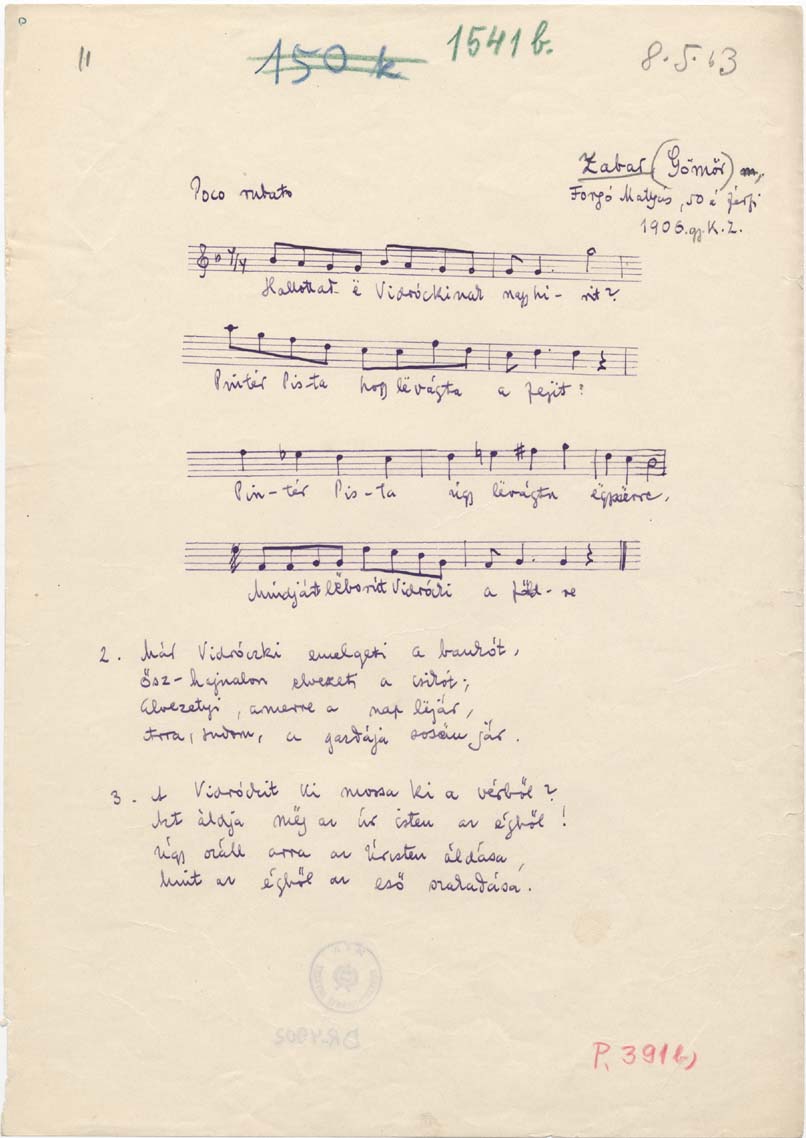 11
150 k
1541 b.
8.5.63
Zabar (Gömör) m,
Forgó Matyás, 50 é férfi
1906. gy. K. Z.
Poco rubato
4/4
Hallottat-ë Vidróckinak nagyhi-rit?
Pintér Pis-ta hogy lëvágta a fejit?
Pin-tér Pis-ta úgy lëvágta ëgyszërre,
Mindjárt lëborút Vidrócki a föld-re
2. Már Vidróczki emelgeti a bankót,
Ősz-hajnalon elvezeti a csikót;
Elvezetyi, amerre a nap lëjár,
Arra, tudom, a gazdája sosëm jár.
3. A Vidróckit ki mossa ki a vérből?
Azt áldja mëg az úr isten az égből!
Úgy száll arra az Úristen áldása,
Mint az égből az eső szakadása.
DR-4902
P. 391b)